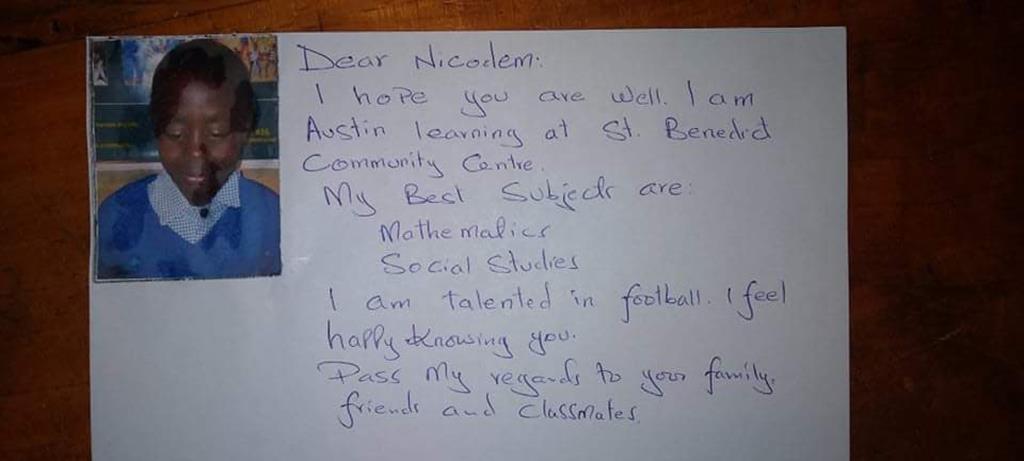 Dear Nicodem:
I hope you are well. I am
Austin learning at St. Benedict
Community Centre.
My Best Subjects are:
Mathematics
Social Studies
I am talented in football. I feel
happy knowing you.
Pass My regards to your family,
friends and classmates.